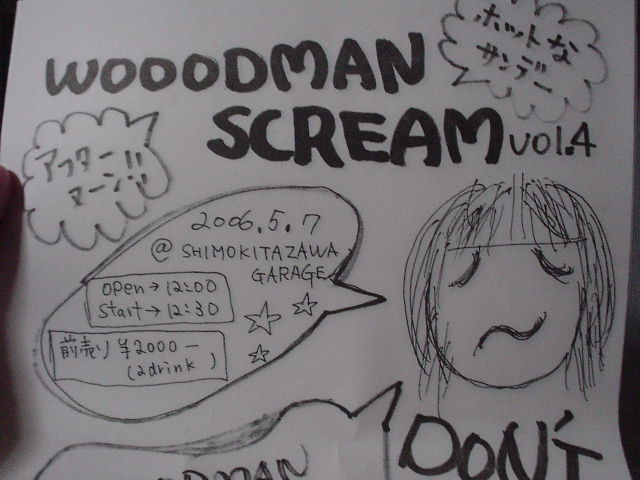 ホットな
サンデー
WOOODMAN
SCREAM vol.4
アフター
ヌーン!!
2006.5.7
@ SHIMOKITAZAWA
GARAGE
open→12:00
start→12:30
前売り ¥2000-
(2drink)
WOODMAN
DON'T